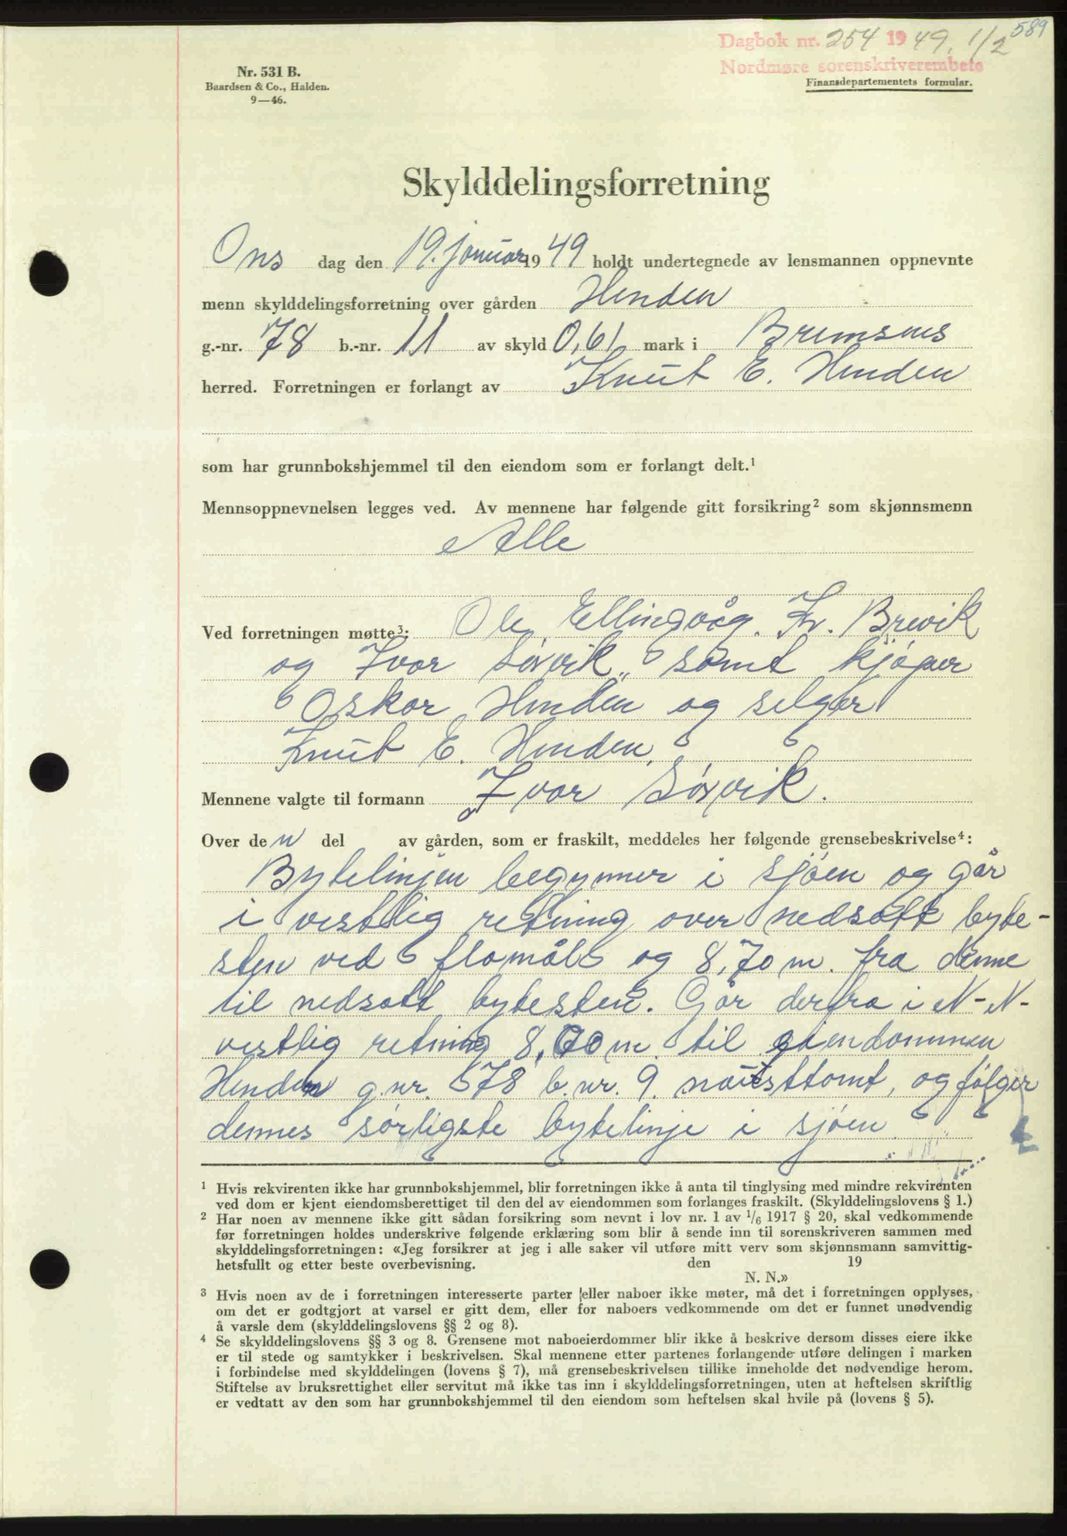 589
Dagbok nr. 254 1949. 1/2
Nordmøre sorenskriverembete
Nr. 531 B.
Baardsen & Co., Halden.
9—46.
Finansdepartementets formular.
Skylddelingsforretning
Ons dag den 19. januar 1949 holdt undertegnede av lensmannen oppnevnte
menn skylddelingsforretning over gården Henden
g.-nr. 78 b.-nr. 11 av skyld 0,61 mark i Bremsnes
herred. Forretningen er forlangt av Knut E. Henden
som har grunnbokshjemmel til den eiendom som er forlangt delt.¹
Mennsoppnevnelsen legges ved. Av mennene har følgende gitt forsikring² som skjønnsmenn
Alle
Ved forretningen møtte³: Ole Ellingvåg. Kr. Brevik
og Ivar Sørvik, samt kjøper
Oskar Henden og selger
Knut E. Henden.
Mennene valgte til formann Ivar Sørvik.
Over den del av gården, som er fraskilt, meddeles her følgende grensebeskrivelse⁴:
Bytelinjen begynner i sjøen og går
i vestlig retning over nedsatt byte-
sten ved flomål og 8,70 m. fra denne
til nedsatt bytesten. Går derfra i N-N-
vestlig retning 8,60 m. til eiendommen
Henden g.nr. 78 b.nr. 9. nausttomt, og følger
dennes sørligste bytelinje i sjøen
¹ Hvis rekvirenten ikke har grunnbokshjemmel, blir forretningen ikke å anta til tinglysing med mindre rekvirenten
ved dom er kjent eiendomsberettiget til den del av eiendommen som forlanges fraskilt. (Skylddelingslovens § 1.)
² Har noen av mennene ikke gitt sådan forsikring som nevnt i lov nr. 1 av 1/6 1917 § 20, skal vedkommende
før forretningen holdes underskrive følgende erklæring som blir å sende inn til sorenskriveren sammen med
skylddelingsforretningen: «Jeg forsikrer at jeg i alle saker vil utføre mitt verv som skjønnsmann samvittig-
hetsfullt og etter beste overbevisning. den 19
N. N.»
³ Hvis noen av de i forretningen interesserte parter eller naboer ikke møter, må det i forretningen opplyses,
om det er godtgjort at varsel er gitt dem, eller for naboers vedkommende om det er funnet unødvendig
å varsle dem (skylddelingslovens §§ 2 og 8).
⁴ Se skylddelingslovens §§ 3 og 8. Grensene mot naboeierdommer blir ikke å beskrive dersom disses eiere ikke
er til stede og samtykker i beskrivelsen. Skal mennene etter partenes forlangende utføre delingen i marken
i forbindelse med skylddelingen (lovens § 7), må grensebeskrivelsen tillike inneholde det nødvendige herom.
Stiftelse av bruksrettighet eller servitut må ikke tas inn i skylddelingsforretningen, uten at heftelsen skriftlig
er vedtatt av den som har grunnbokshjemmel til den eiendom som heftelsen skal hvile på (lovens § 5).